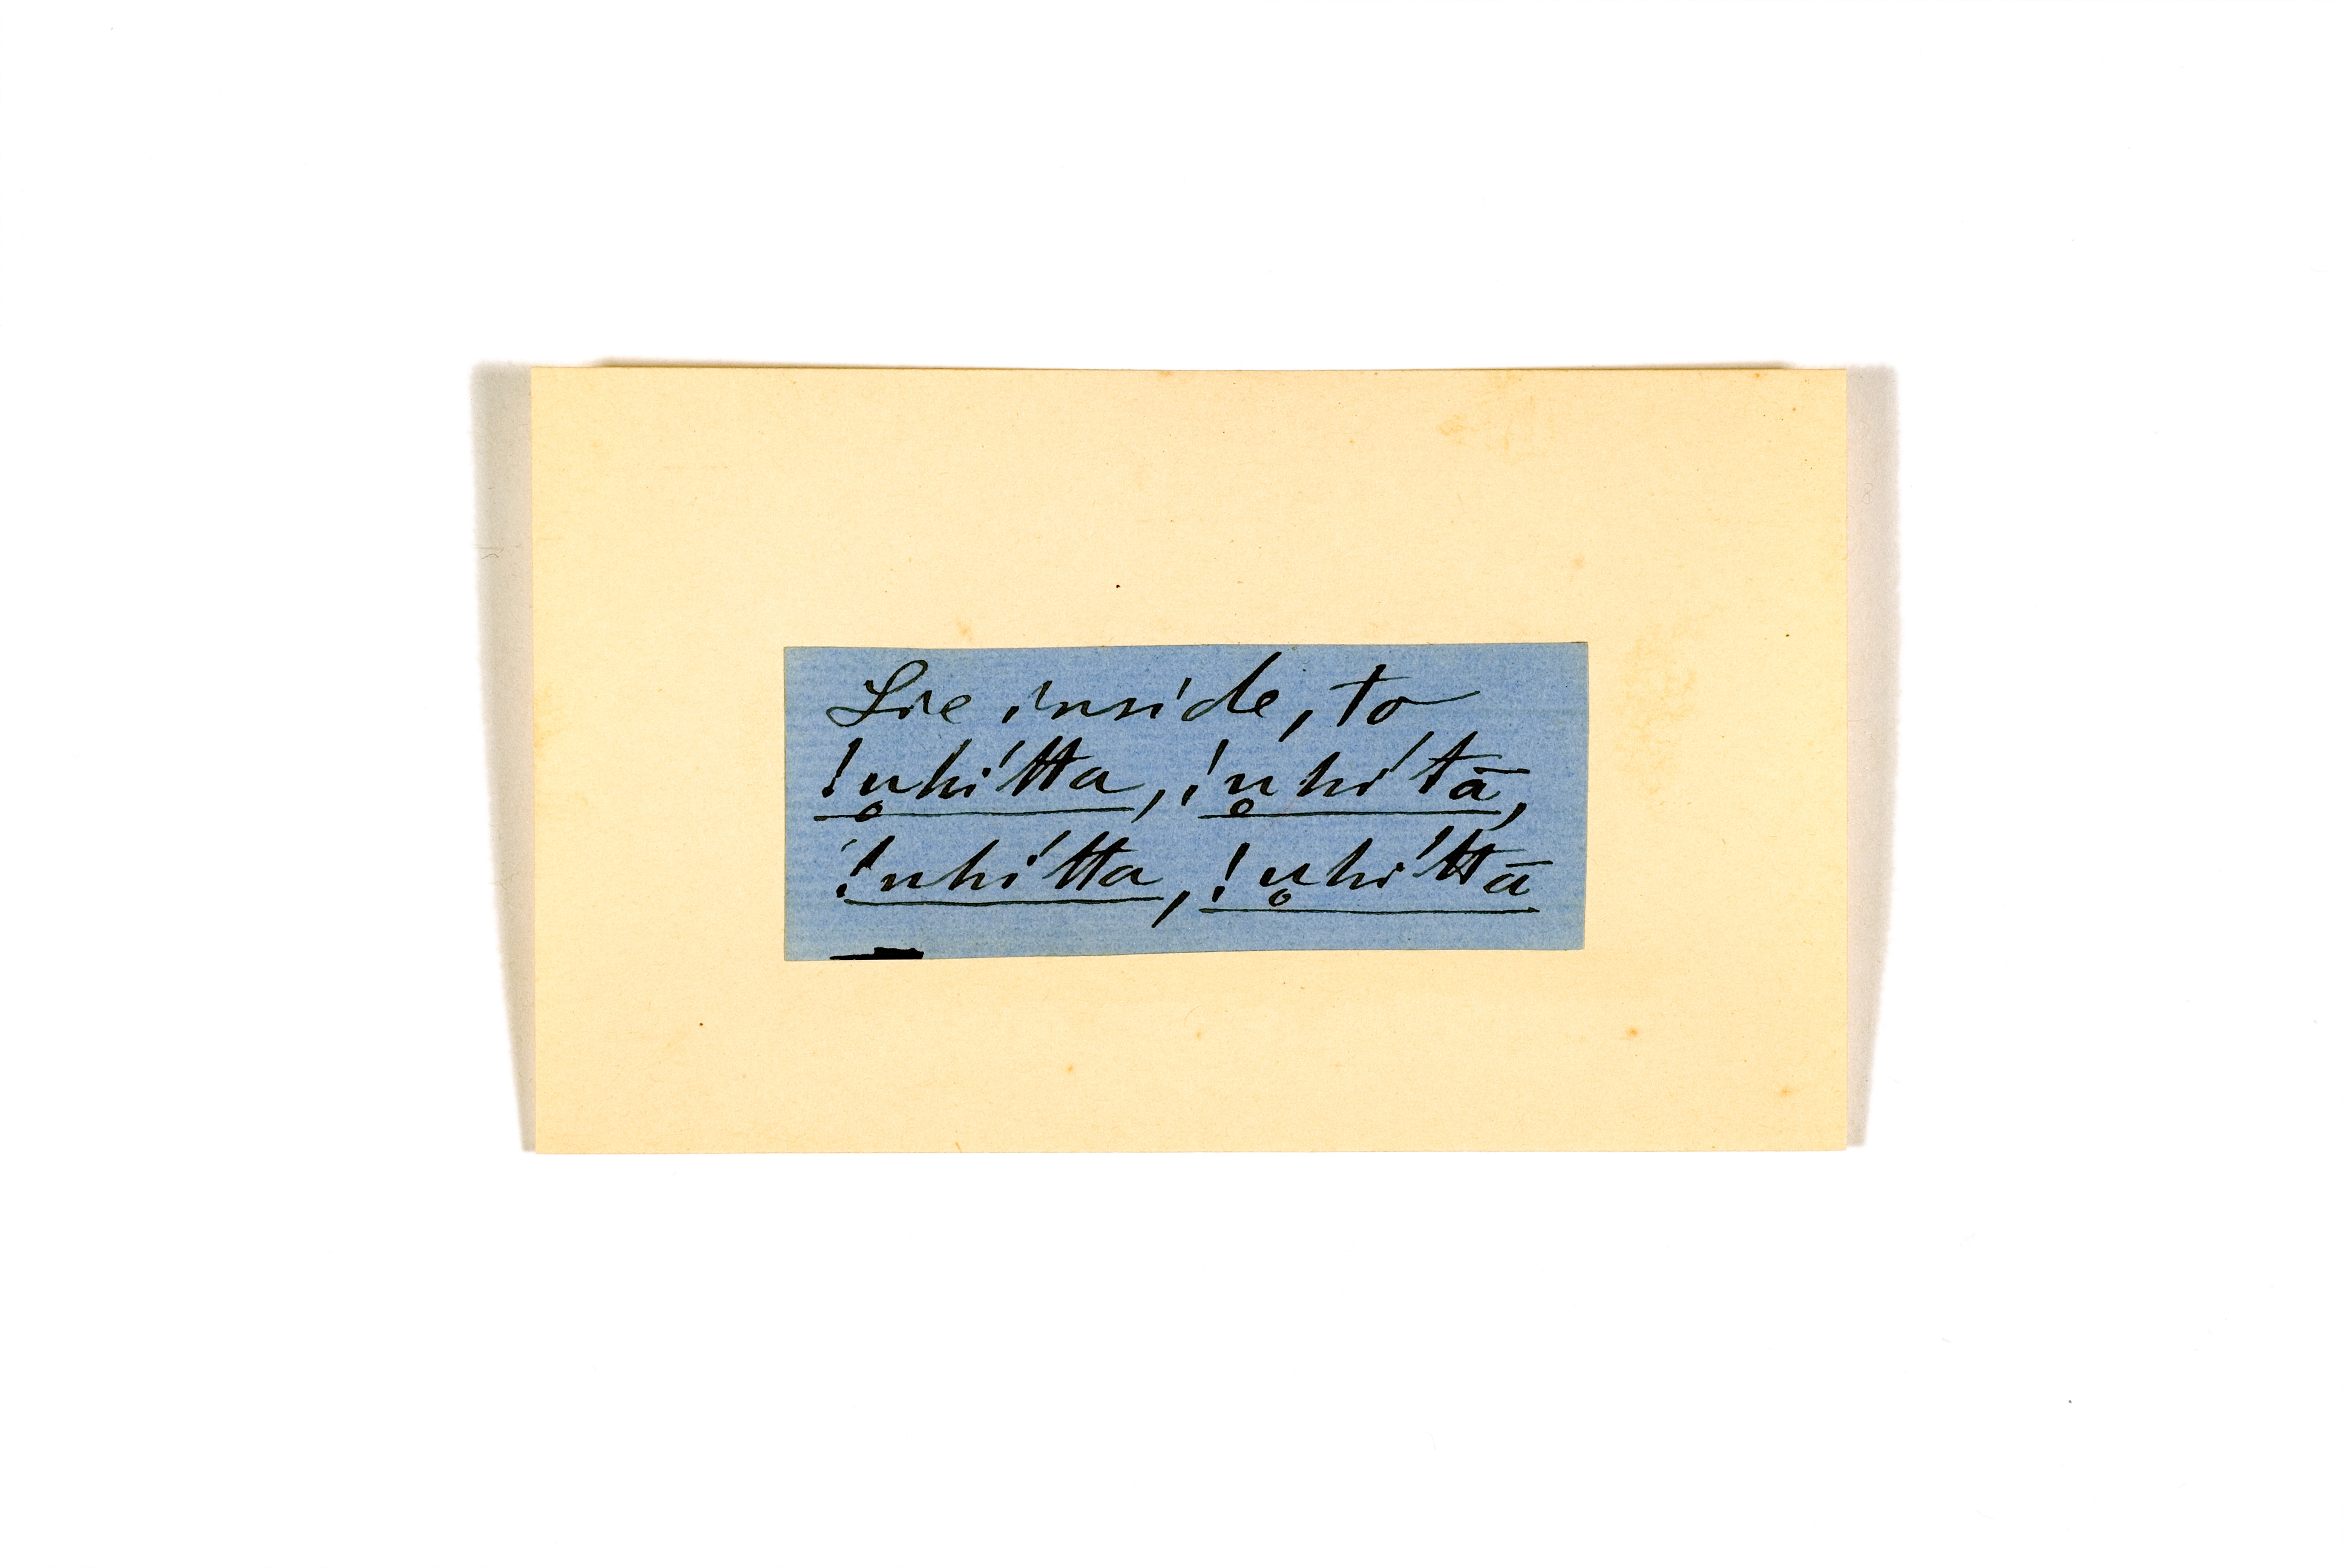 Lie inside, to
!u̥hí́tta, !u̥hí́tā,
!uhí́tta, !u̥hí́ttā